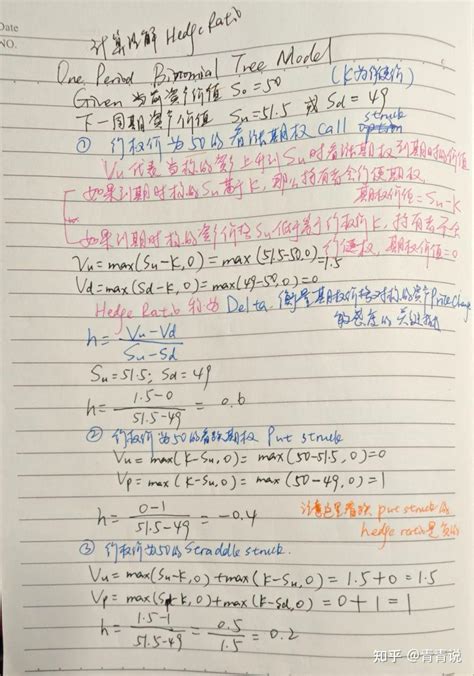 Date
NO.
计算 Hedge Ratio
One Period Binomial Tree Model
Given 当前资产价值 S₀=50 (K为行使价)
下一周期资产价值 Su=51.5 或 Sd=49
① 约权价为50的看涨期权 call struck option
Vu 代表当标的资产上升到Su时看涨期权到期时的价值
如果到期时标的Su高于K,那么持有者会行使期权
期权价值=Su-K
如果到期时标的资产价格Su低于等于行权价K,持有者不会
行使权,期权价值=0
Vu=max(Su-K,0)=max(51.5-50,0)=1.5
Vd=max(Sd-K,0)=max(49-50,0)=0
Hedge Ratio 称为 Delta, 衡量期权价格对标的资产Price Change
的敏感度的关键指标
h= Vu-Vd
Su-Sd
Su=51.5; Sd=49
h= 1.5-0 = 0.6
51.5-49
② 约权价为50的看跌期权 Put struck
Vu=max(K-Su,0)=max(50-51.5,0)=0
Vp=max(K-Su,0)=max(50-49,0)=1
h= 0-1 = -0.4
51.5-49
注意这里看跌 put struck 的
hedge ratio是负的
③ 约权价为50的Straddle struck.
Vu=max(Su-K,0)+max(K-Su,0)=1.5+0=1.5
Vp=max(Sd-K,0)+max(K-Sd,0)=0+1=1
h= 1.5-1 = 0.5 = 0.2
51.5-49 1.5
知乎 @青青说